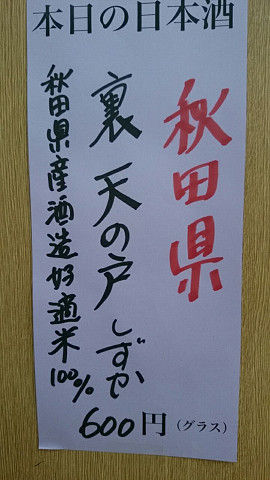 本日の日本酒
秋田県
裏天の戸しずか
秋田県産酒造好適米100%
600円(グラス)